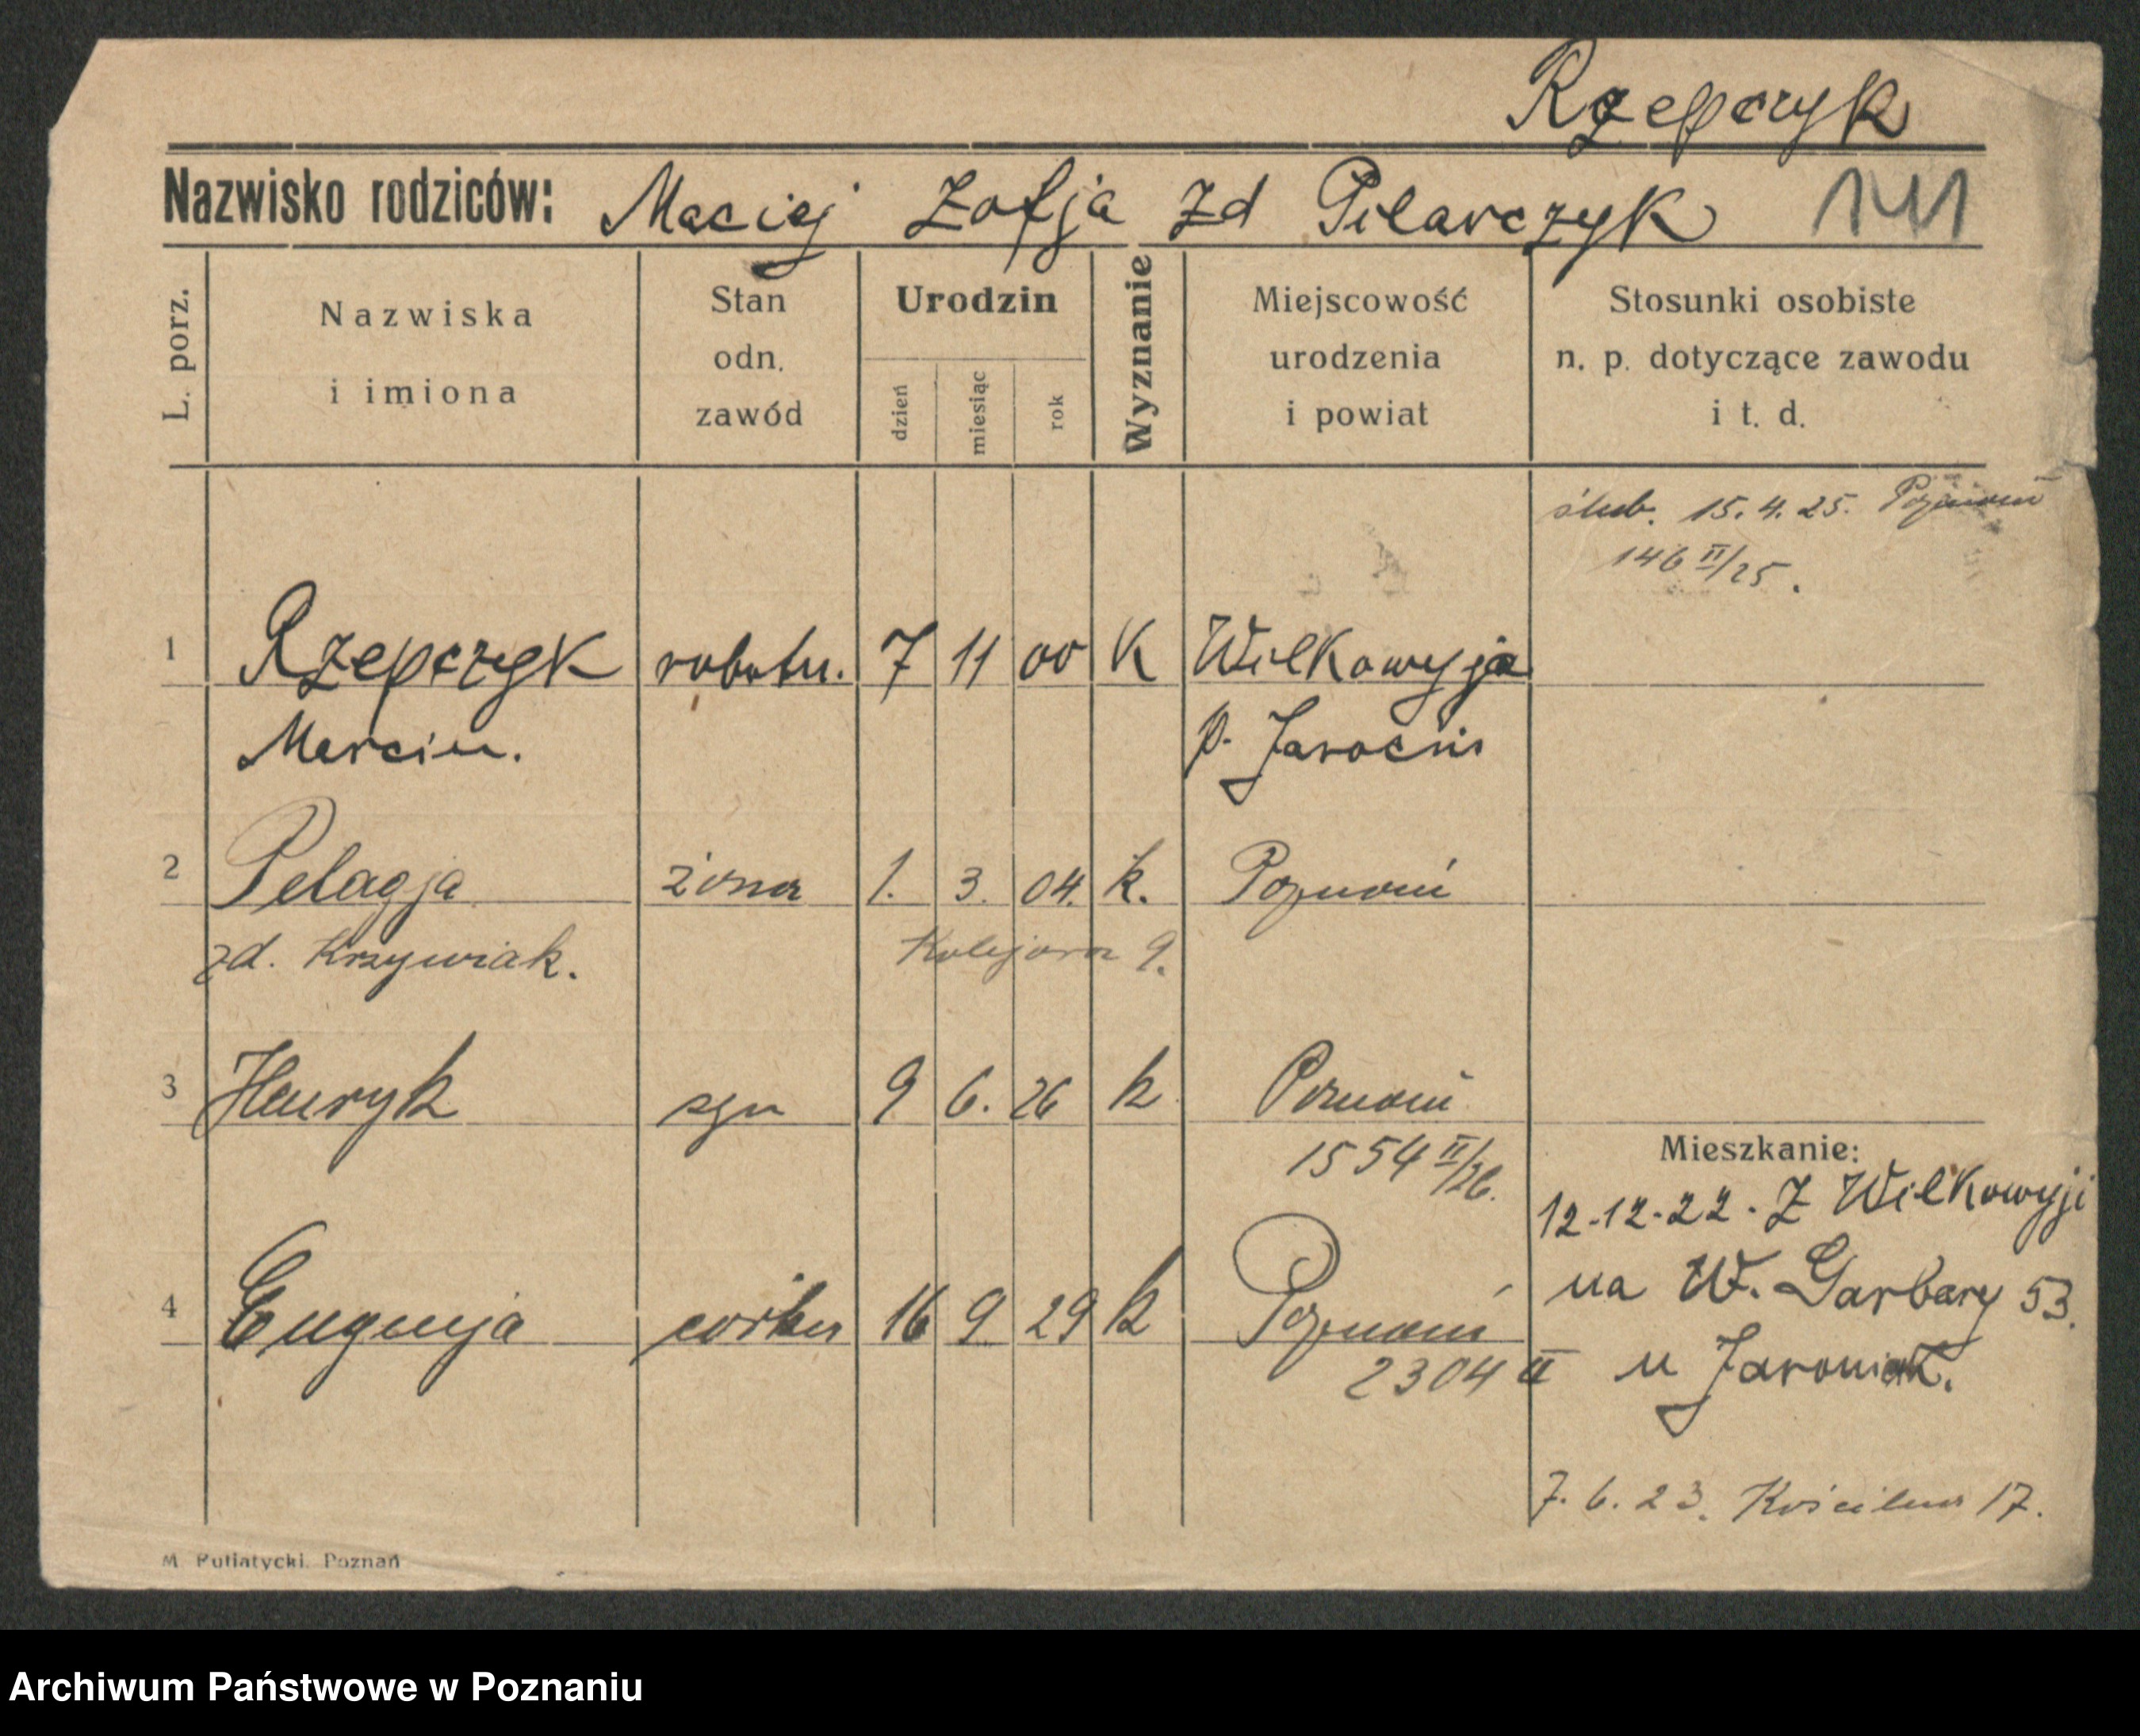 Rzepczyk
Nazwisko rodziców: Maciej Zofja zd Pilarczyk 141
L. porz. Nazwiska i imiona Stan odn. zawód Urodzin dzień miesiąc rok Wyznanie Miejscowość urodzenia i powiat Stosunki osobiste n. p. dotyczące zawodu i t. d.
ślub. 15.4.25. Poznań
146 II/25.
1 Rzepczyk robotn. 7 11 00 K Wilkowyja
Marcin. p. Jarocin
2 Pelagja żona 1. 3. 04. k. Poznań
zd. Krzywiak. Kolejowa 9.
3 Henryk syn 9 6. 26 k Poznań
1554 II/26.
Mieszkanie:
12.12.22. Z Wilkowyji
na W. Garbary 53.
4 Eugenja córka 16 9 29 k Poznań
2304 II
u Jaroniak.
7.6.23. Kościelna 17.
M. Putiatycki, Poznań
Archiwum Państwowe w Poznaniu